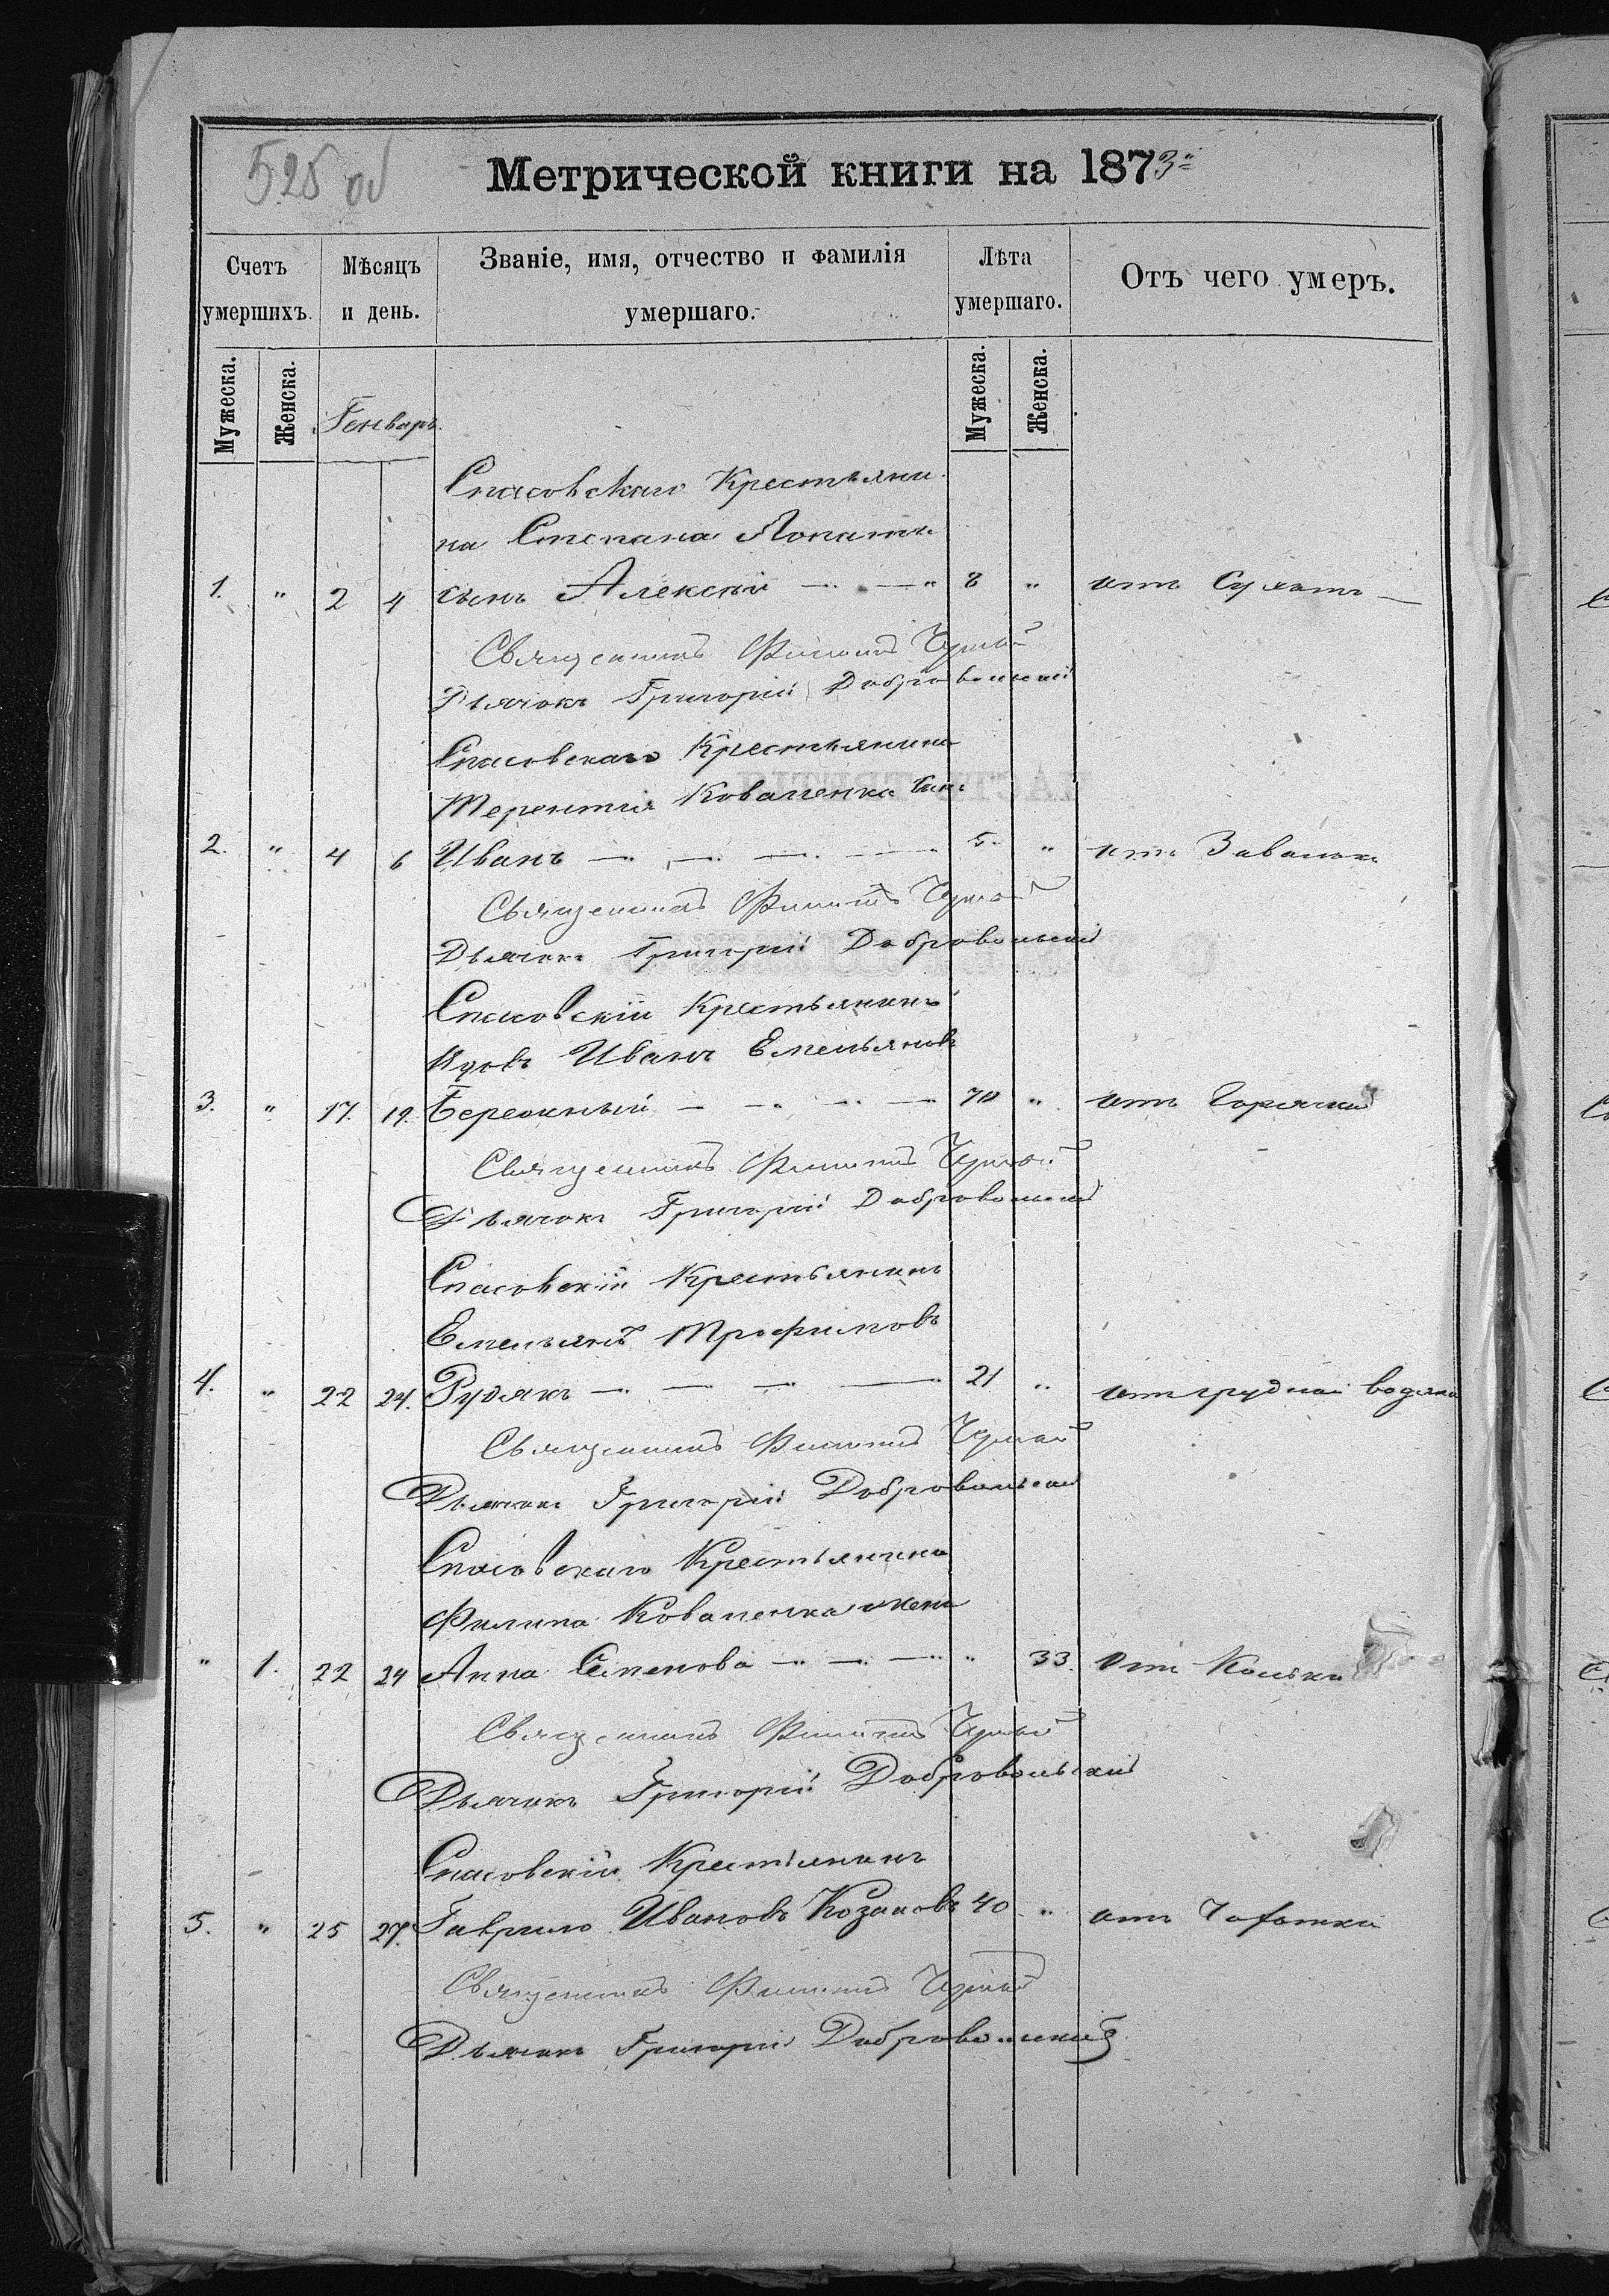 525 об
Метрической книги на 1873
Счетъ умершихъ.
Мѣсяцъ и день.
Званіе, имя, отчество и фамилія умершаго.
Лѣта умершаго.
Отъ чего умеръ.
Мужеска.
Женска.
Генваръ
Мужеска.
Женска.
Спасовскаго Крестьяни
на Степана Лопаты
1. " 2 4 сынъ Алексѣй 8 " отъ Сухотъ
Священникъ Филиппъ
Дьячокъ Григорій Добровольскій
Спасовскаго Крестьянина
Терентія Коваленка сынъ
2. " 4 6 Иванъ 5 " отъ
Священникъ Филиппъ
Дьячокъ Григорій Добровольскій
Спасовскій Крестьянинъ
вдовъ Иванъ Емельяновъ
3. " 17. 19. 70 " отъ Горячки
Священникъ Филиппъ
Дьячокъ Григорій Добровольскій
Спасовскій Крестьянинъ
Емельянъ Трофимовъ
4. " 22 24. Рудякъ 21 " отъ грудной водяно
Священникъ Филиппъ
Дьячокъ Григорій Добровольскій
Спасовскаго Крестьянина
Филипа Коваленка жена
" 1. 22 24 Анна Семенова " 33. отъ Колька
Священникъ Филиппъ
Дьячокъ Григорій Добровольскій
Спасовскій Крестьянинъ
5. " 25 27. Гаврило Ивановъ Козаковъ 40 " отъ Чахотки
Священникъ Филиппъ
Дьячокъ Григорій Добровольскій